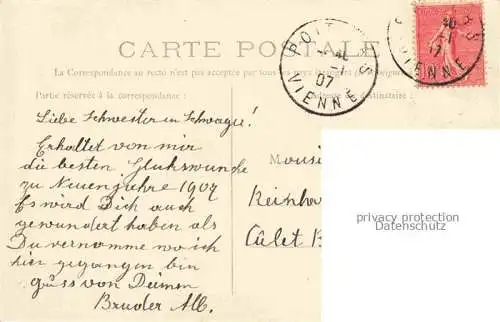 CARTE POSTALE
La Correspondance au recto n'est pas acceptée par tous les pays
Partie réservée à la correspondance
Adresse du destinataire
POITIERS
VIENNE
07
VIENNE
Liebe Schwester u Schwager!
Erhaltet von mir
die besten Glukswunche
zu Neuenjahre 1907
Es wird Dich auch
gewundert haben als
Du vernomme wo ich
hier gegangen bin
gůss von Deinem
Bruder Alb.
Mousi
Reinha
Cûlet B
privacy protection
Datenschutz